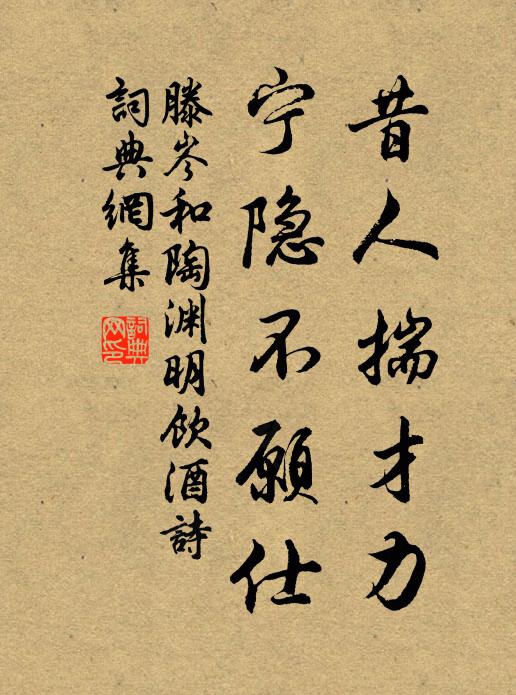 昔人揣才力
宁隐不願仕
滕岑和陶渊明飲酒詩
詞典網集
詞典网印